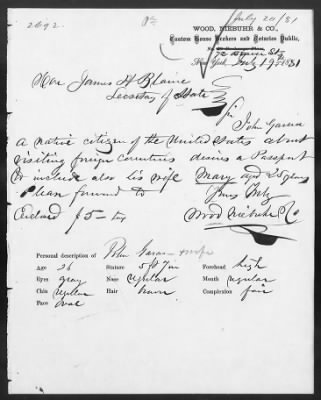 2692
July 20/81
WOOD, NIEBUHR & CO.,
Custom House Brokers and Notaries Public,
New York, July 19 1881
Hon James H Blaine
Secretary of State
Sir
John
a native citizen of the United States about
visiting foreign countries desires a Passport
to include also his wife Mary aged 25 years
Please forward to Yours truly
Enclosed $5- tax Wood Niebuhr & Co
Personal description of John
Age 26 Stature 5 ft 7 in Forehead high
Eyes gray Nose regular Mouth regular
Chin regular Hair brown Complexion fair
Face oval